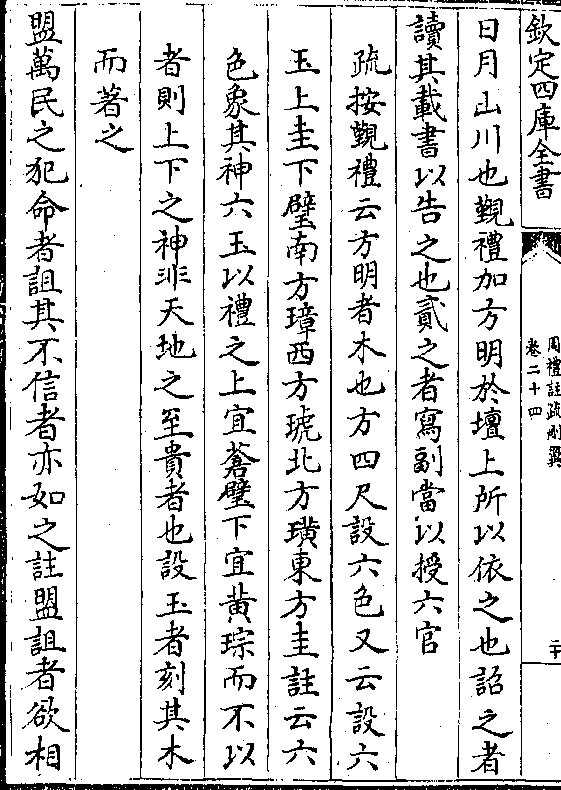 欽定四庫全書
周禮註疏刪翼
卷二十四
二十
日月山川也覲禮加方明於壇上所以依之也詔之者
讀其載書以告之也貳之者寫副當以授六官
疏按覲禮云方明者木也方四尺設六色又云設六
玉上圭下璧南方璋西方琥北方璜東方圭註云六
色象其神六玉以禮之上宜蒼璧下宜黃琮而不以
者則上下之神非天地之至貴者也設玉者刻其木
而著之
盟萬民之犯命者詛其不信者亦如之註盟詛者欲相